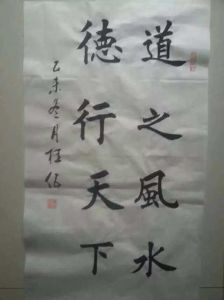 道之風水
德行天下
乙未冬月